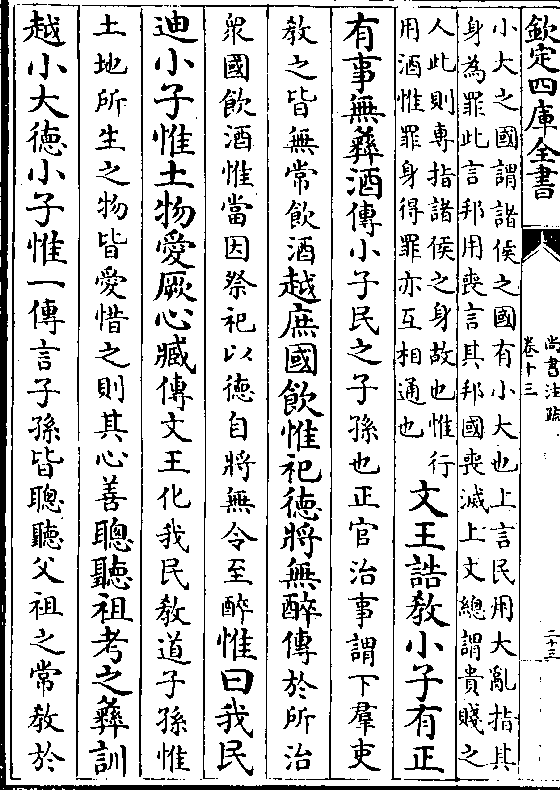 欽定四庫全書
尚書注疏
卷十三
二十三
小大之國謂諸侯之國有小大也上言民用大亂指其
身為罪此言邦用喪言其邦國喪滅上文總謂貴賤之
人此則專指諸侯之身故也惟行
用酒惟罪身得罪亦互相通也
文王誥教小子有正
有事無彝酒傳小子民之子孫也正官治事謂下羣吏
教之皆無常飲酒越庶國飲惟祀德將無醉傳於所治
衆國飲酒惟當因祭祀以德自將無令至醉惟曰我民
迪小子惟土物愛厥心臧傳文王化我民教道子孫惟
土地所生之物皆愛惜之則其心善聰聽祖考之彝訓
越小大德小子惟一傳言子孫皆聰聽父祖之常教於